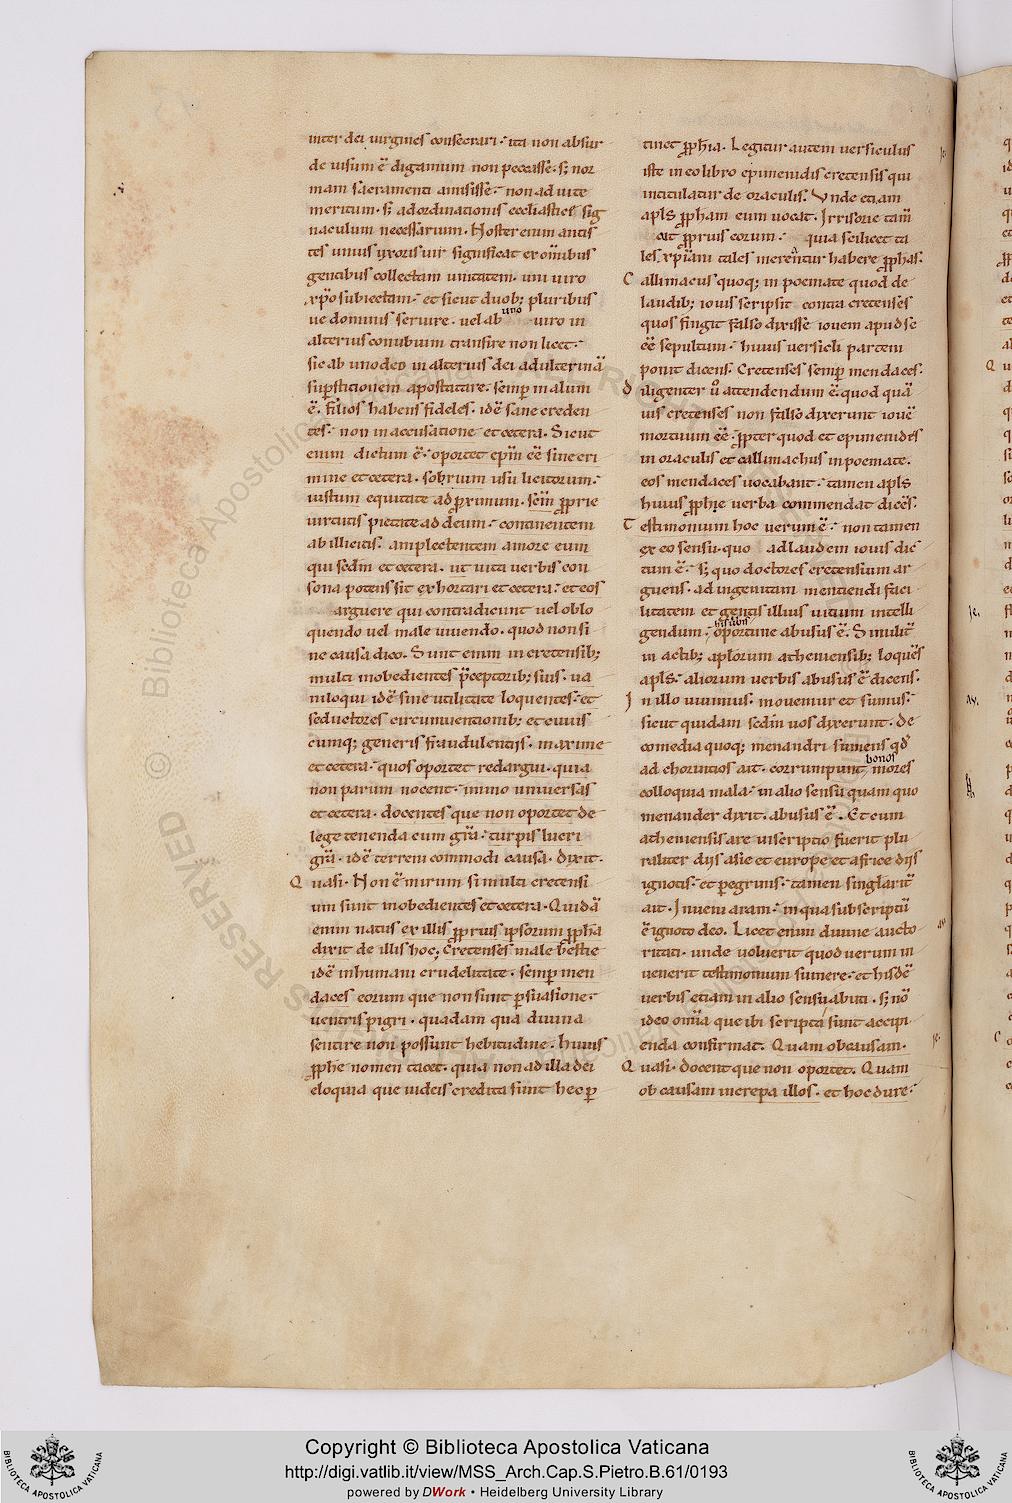 inter dei virgines consecrari. ita non absur
de uisum ē digamum non peccasse. s; nor
mam sacramenti amisisse. non ad uite
meritum. s; ad ordinationis ecclīasticę sig
naculum necessarium. Noster enim antis
tes unius uxoris uir significat ex omībus
gentibus collectam unitatem. uni uiro
xpō subiectam. et sicut duob; pluribus
ue dominis seruire. vel ab uno uiro in
alterius conubium transire non licet.
sic ab uno deo in alterius dei adulterinā
sup̄stitionem apostatare. semp̄ malum
ē. Filios habens fideles. idē sane creden
tes. non in accusatione et cetera. Sicut
enim dictum ē. oportet ep̄m eē sine cri
mine et cetera. sobrium usu licitorum.
iustum equitate ad proximum. scm̄ proprie
uirtutis pietate ad deum. continentem
ab illicitis. amplectentem amore eum
qui scdm et cetera. ut uita uerbis con
sona potens sit exhortari et cetera. et eos
arguere qui contradicunt uel oblo
quendo uel male uiuendo. quod non si
ne causa dico. Sunt enim in cretensib;
multi inobedientes pceptorib; suis. ua
niloqui idē sine utilitate loquentes. et
seductores circumuentionib; et cuius
cumq; generis fraudulentiis. maxime
et cetera. quos oportet redargui. quia
non parum nocent. immo uniuersas
et cetera. docentes que non oportet de
lege tenenda cum grā. turpis lucri
grā. idē terreni commodi causa. dixit.
Quasi. Non ē mirum si multi cretensi
um sunt inobedientes et cetera. Quidā
enim natus ex illis proprius ipsorum propha
dixit de illis hoc; Cretenses male bestie
idē inhumani crudelitate. semp̄ men
daces eorum que non sunt psuasione.
uentris pigri. quadam qua diuina
sentire non possunt hebitudine. huius
prophe nomen tacet. quia non ad illa dei
eloquia que iudeis credita sunt hec p
tinet prophia. Legitur autem uersiculus
iste in eo libro epimenidis cretensis qui
intitulatur de oraculis. Unde etiam
apls propham eum uocat. Irrisorie tam̄
ait proprius eorum. quia scilicet ta
les xp̄iani tales merentur habere prophas.
Callimacus quoq; in poemate quod de
laudib; iouis scripsit contra cretenses
quos fingit falso dixisse iouem apud se
eē sepultum. huius uersicli partem
ponit dicens. Cretenses semp̄ mendaces.
Diligenter ū attendendum ē. quod quā
uis cretenses non falso dixerunt iouē
mortuum eē. propter quod et epimenides
in oraculis et callimachus in poemate.
eos mendaces uocabant. tamen apls
huius prophie uerba commendat dicēs.
Testimonium hoc uerum ē. non tamen
ex eo sensu. quo ad laudem iouis dic
tum ē. s; quo doctores cretensium ar
guens. ad ingenitam mentiendi faci
litatem et gentis illius uitium intelli
gendum. his ūbis oportune abusus ē. Similit̄
in actib; aplorum atheniensib; loquēs
apls. aliorum uerbis abusus ē dicens.
In illo uiuimus. mouemur et sumus.
sicut quidam scdm uos dixerunt. De
comedia quoq; menandri sumens qd̄
ad chorintios ait. corrumpunt bonos mores
colloquia mala. in alio sensu quam quo
menander dixit. abusus ē. Et cum
atheniensis are inscriptio fuerit plu
raliter diis asie et europe et africe diis
ignotis. et peregrinis. tamen singlarit̄
ait. Inueni aram. in qua subscriptū
ē ignoto deo. Licet enim diuine aucto
ritati. unde uoluerit quod uerum in
uenerit testimonium sumere. et hisdē
uerbis etiam in alio sensu abuti. s; nō
ideo omīa que ibi scripta sunt accipi
enda confirmat. Quam ob causam.
Quasi. docent que non oportet. Quam
ob causam increpa illos. et hoc dure.
Copyright © Biblioteca Apostolica Vaticana
http://digi.vatlib.it/view/MSS_Arch.Cap.S.Pietro.B.61/0193
powered by DWork • Heidelberg University Library